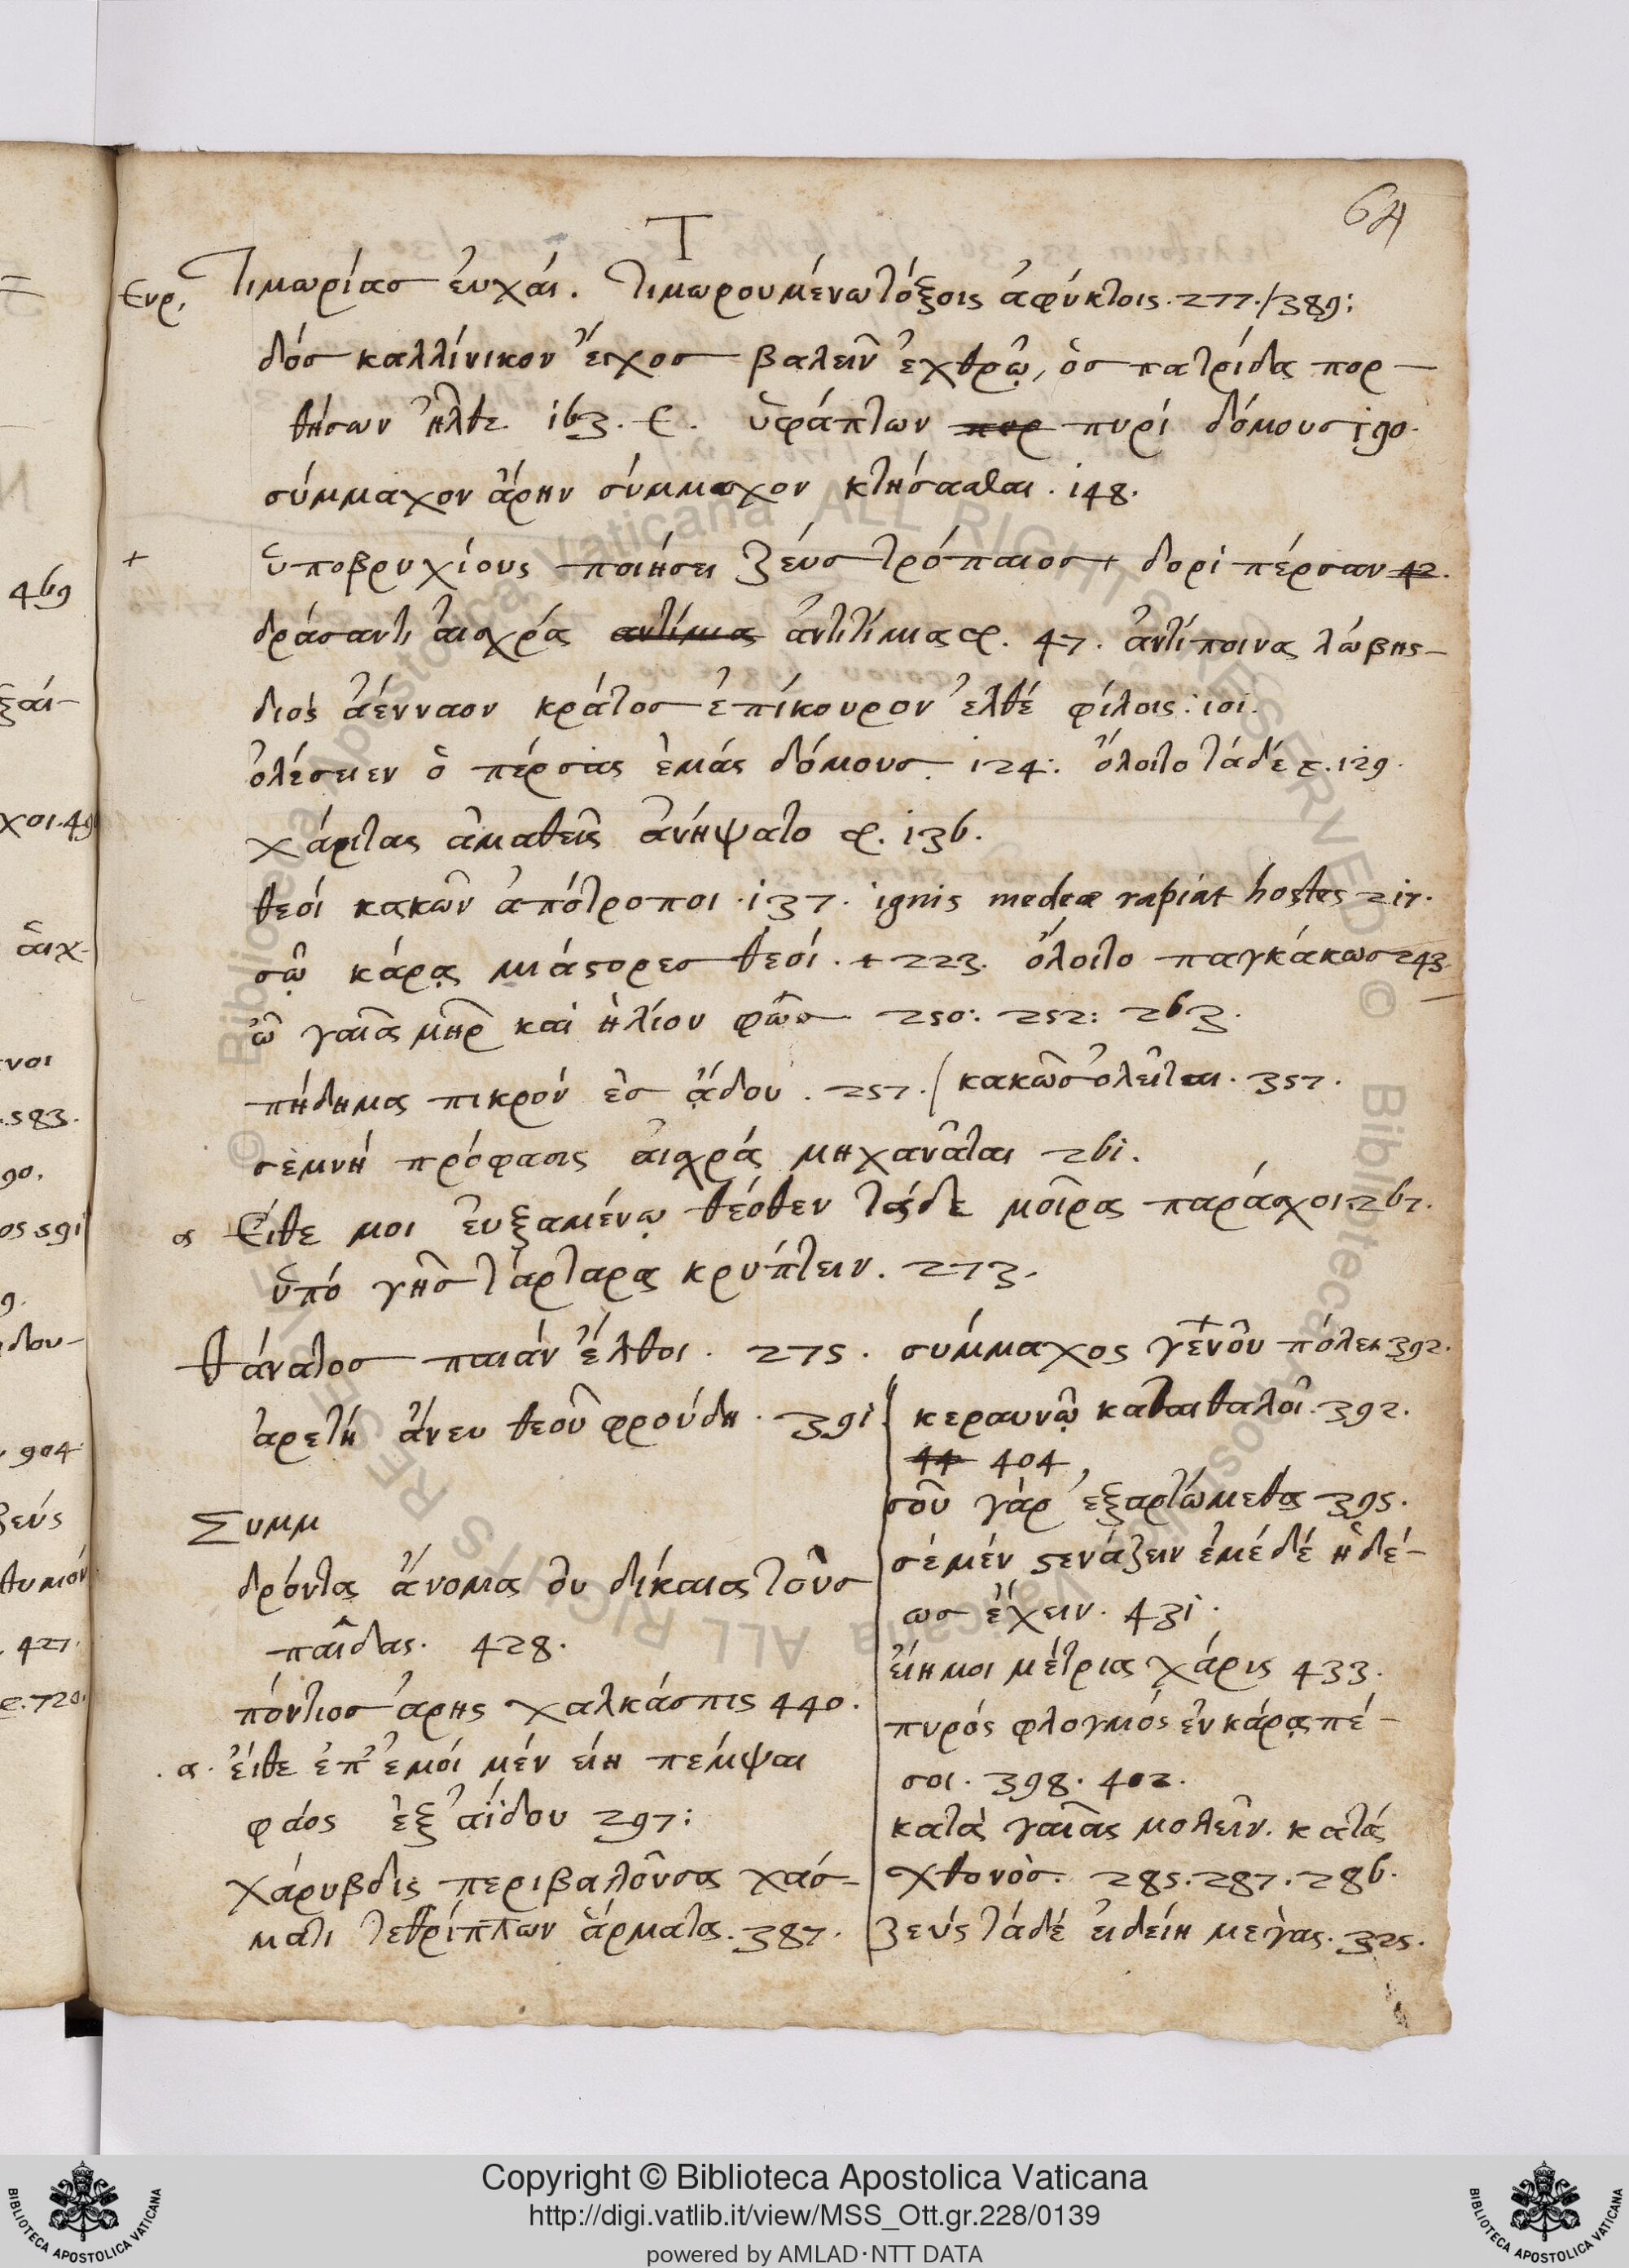 64
Τ
Ευρ. Τιμωρίασ ἐυχάι. Τιμωρουμένω τόξοις ἀφύκτοις. 277./389:
δόσ καλλίνικον ἔιχοσ βαλεῖν ἐχθρῶ, ὁσ πατρίδα πορ-
θήσων ἦλθε 163. ὑφάπτων πυρ πυρί δόμουσ 190.
σύμμαχον ἄρην σύμμαχον κτήσασθαι. 148.
+ ὑποβρυχίους ποιήσει ζέυσ τρόπαιοσ + δορί πέρσαν 42.
δράσαντι ἀισχρά αντίμια ἀντιτίμια. 47. ἀντίποινα λώβης-
διόσ ἀένναον κράτοσ ἐπίκουρον ἐλθέ φίλοις: 101.
ὀλέσειεν ὁ πέρσας ἐμάς δόμουσ. 124: ὄλοιτο τάδε. 129.
χάριτας ἀμαθεῖς ἀνήψατο. 136.
θεόι κακῶν ἀπότροποι. 137. ignis medeæ rapiat hostes 217.
σῶ κάρα μιάστορεσ θεόι. + 223. ὄλοιτο παγκάκωσ 243.
ὦ γαῖα μῆρ και ἡλίου φῶσ 250: 252: 263.
πήδημα πικρόν ἐσ ἅδου. 257./ κακῶσ ὀλεῖται. 357.
σεμνή πρόφασις ἀισχρά μηχανᾶται 261.
α Ἐίθε μοι ἐυξαμένω θεόθεν τάδε μοῖρα παράσχοι. 267.
ὑπό γῆσ τάρταρα κρύπτειν. 273.
θάνατοσ παιάν ἔλθοι. 275. σύμμαχος γενοῦ πόλει 392.
ἀρετή ἄνευ θεοῦ φρούδη. 391
Συμμ
δρόντα ἄνομα ου δίκαια τοὺσ
παῖδας. 428.
πόντιοσ ἄρης χαλκάσπις 440.
. α. ἐίθε ἐπ' ἐμόι μέν ειη πέμψαι
φάος ἐξ ἀΐδου 297:
χάρυβδις περιβαλοῦσα χάσ-
ματι τεθρίππων ἅρματα. 387.
κεραυνῶ καταιθαλοῖ. 392.
44 404,
σοῦ γὰρ ἐξαρτώμεθα 395.
σέ μέν στενάζειν ἐμέ δέ ἡδέ-
ωσ ἔχειν. 431.
ἔιη μοι μέτρια χάρις 433.
πυρός φλογμός ἐν κάρα πέ-
σοι. 398. 402.
κατὰ γαίας μολεῖν. κατά
χθονόσ. 285. 287. 286.
ζεύς τάδέ ειδείη μεγας. 325.
Copyright © Biblioteca Apostolica Vaticana
http://digi.vatlib.it/view/MSS_Ott.gr.228/0139
powered by AMLAD·NTT DATA